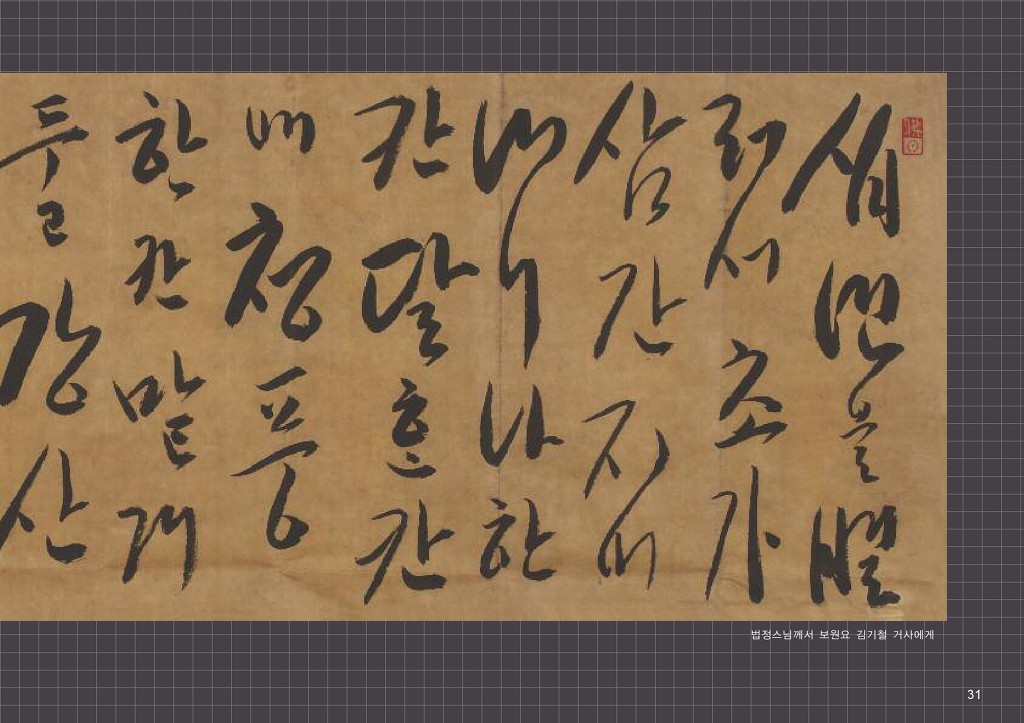 십년을 별
러서 초가
삼간 지어
내니 나 한
칸 달 한 칸
에 청풍
한 칸 맡겨
두고 강산
법정스님께서 보원요 김기철 거사에게
31